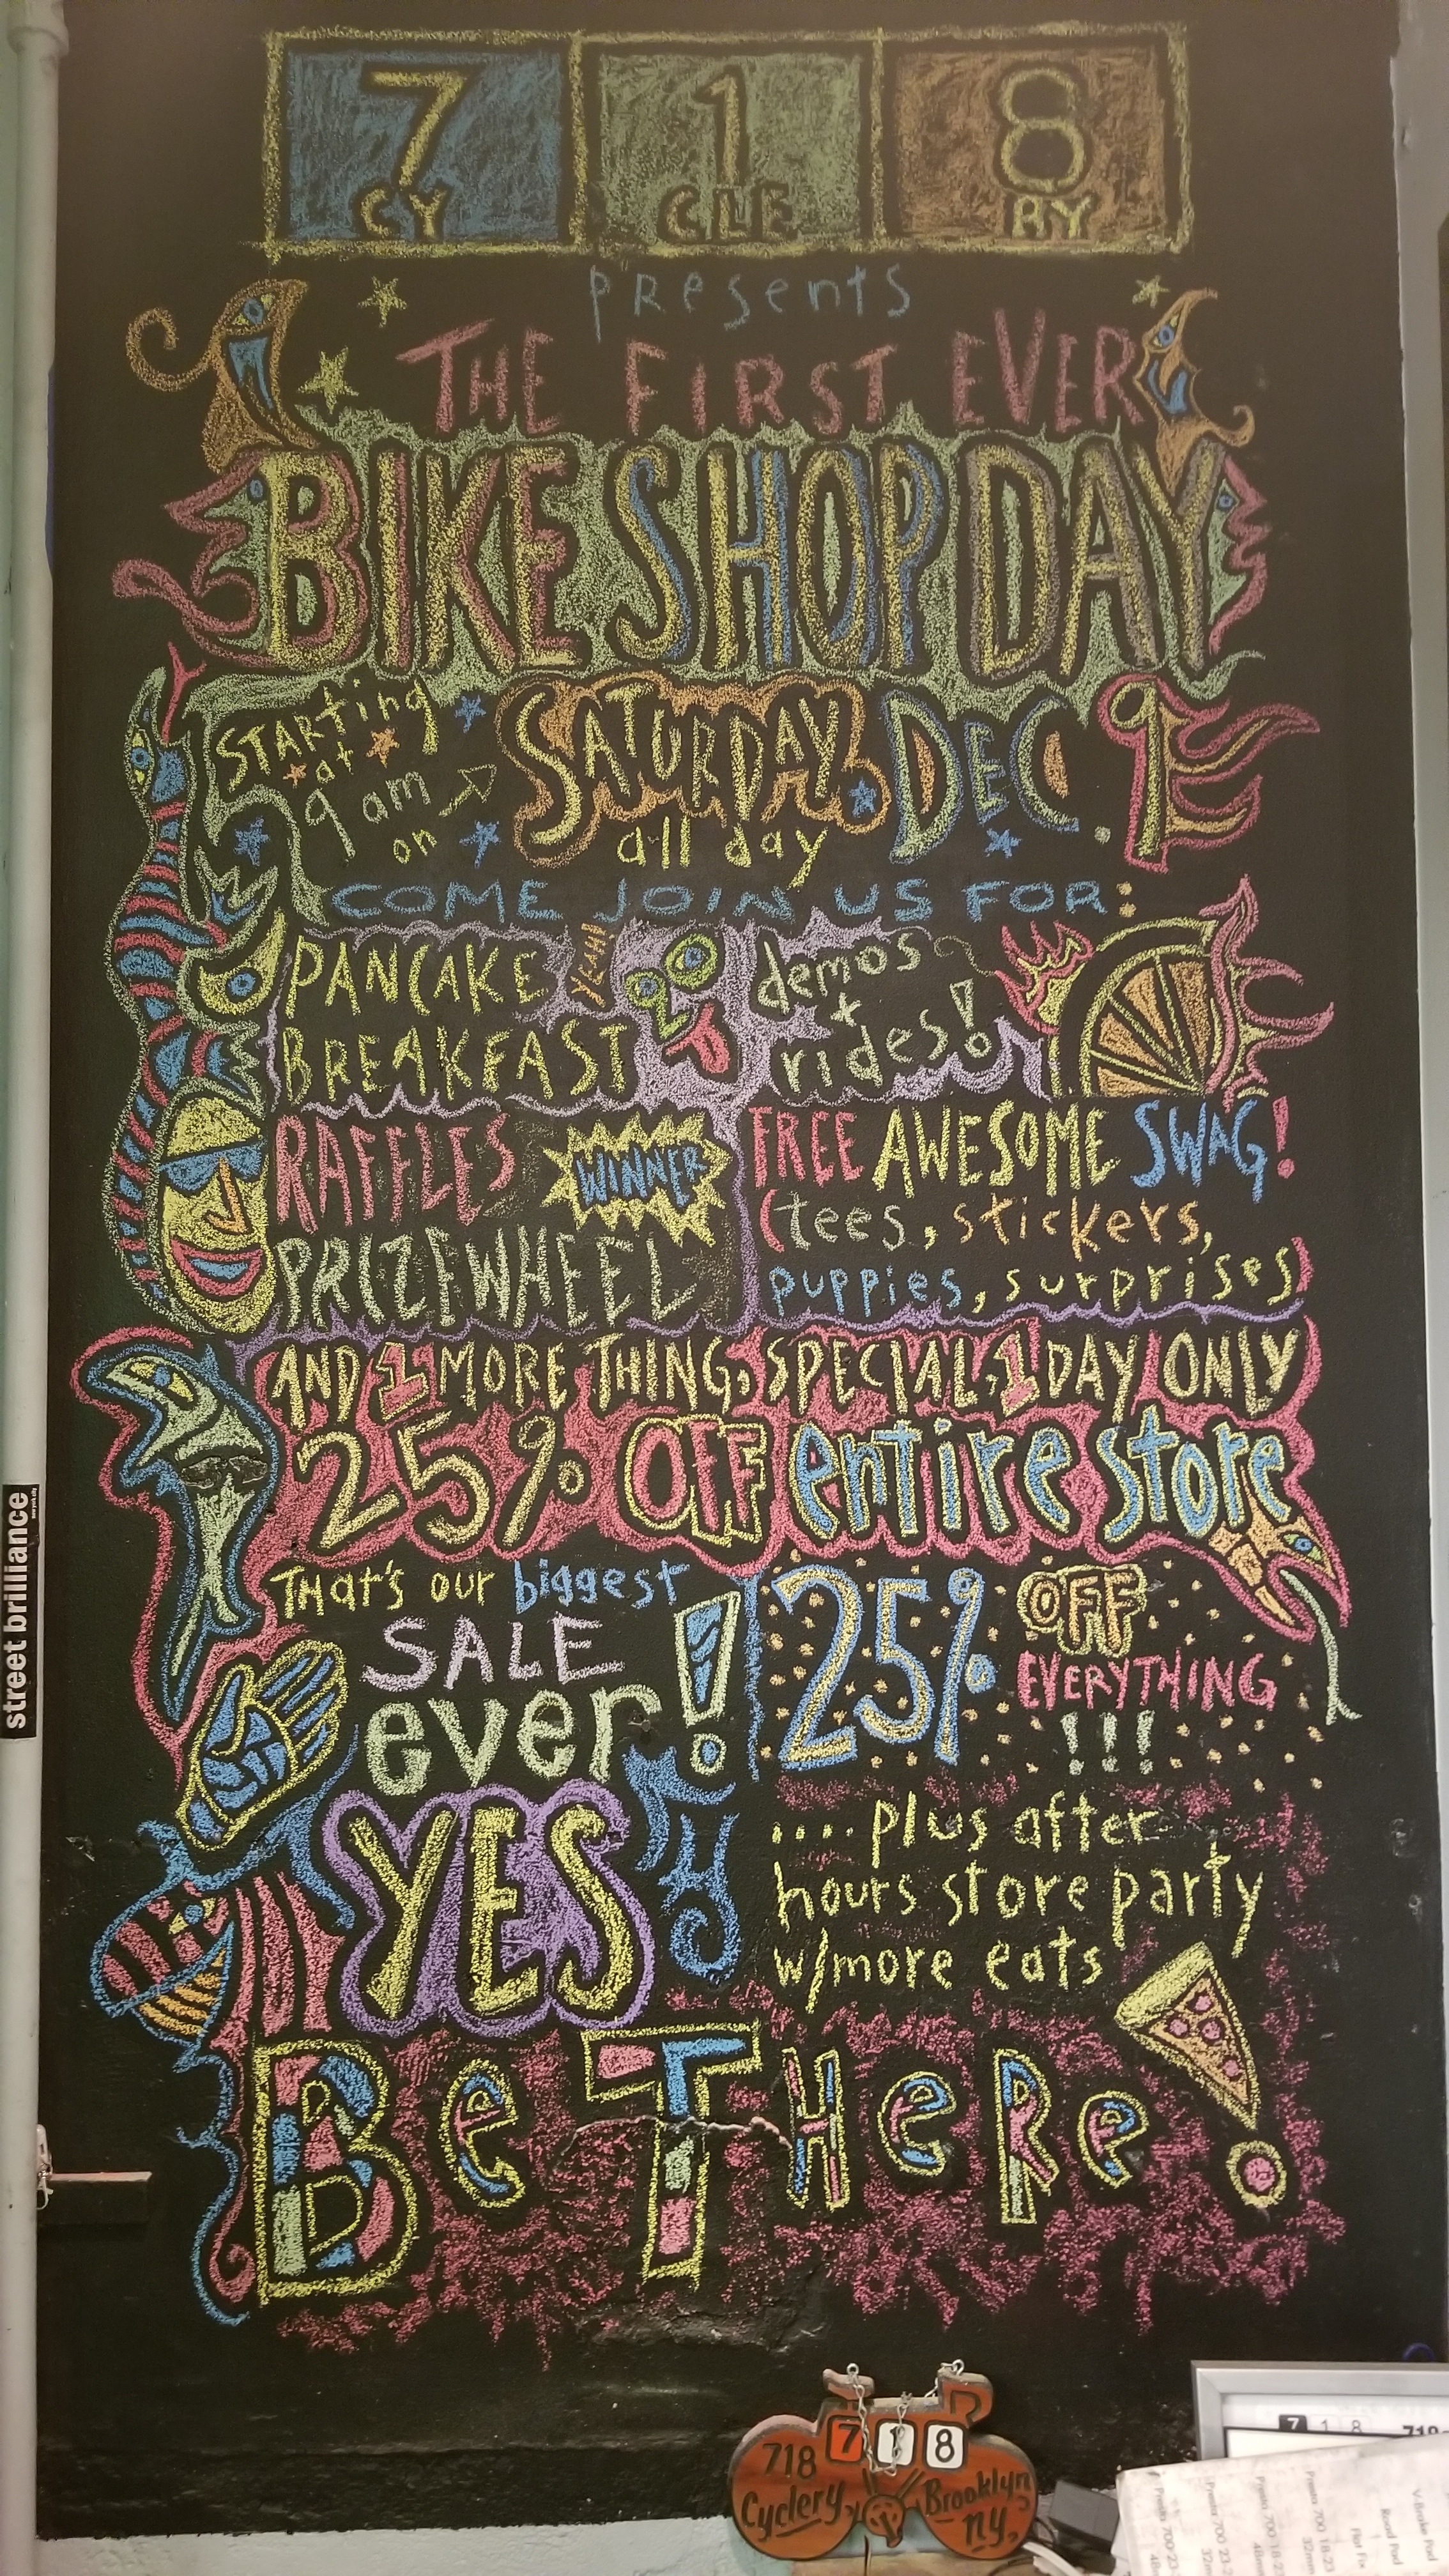 7 1 8
CY CLE RY
presents
THE FIRST EVER
BIKE SHOP DAY
STARting
at
9 am
on
SATURDAY DEC. 9
all day
COME JOIN US FOR:
PANCAKE
BREAKFAST
YEAH!
demos
+
rides!
RAFFLES
WINNER
PRIZE WHEEL
FREE AWESOME SWAG!
(tees, stickers,
puppies, surprises)
AND 1 MORE THING, SPECIAL, 1 DAY ONLY
25% OFF entire store
THat's our biggest
SALE
ever!
25% OFF
EVERYTHING
!!!
YES
.... plus after
hours store party
w/more eats
Be THeRe!
street brilliance
7 1 8
718
Cyclery,
Brooklyn
ny,
7 1 8